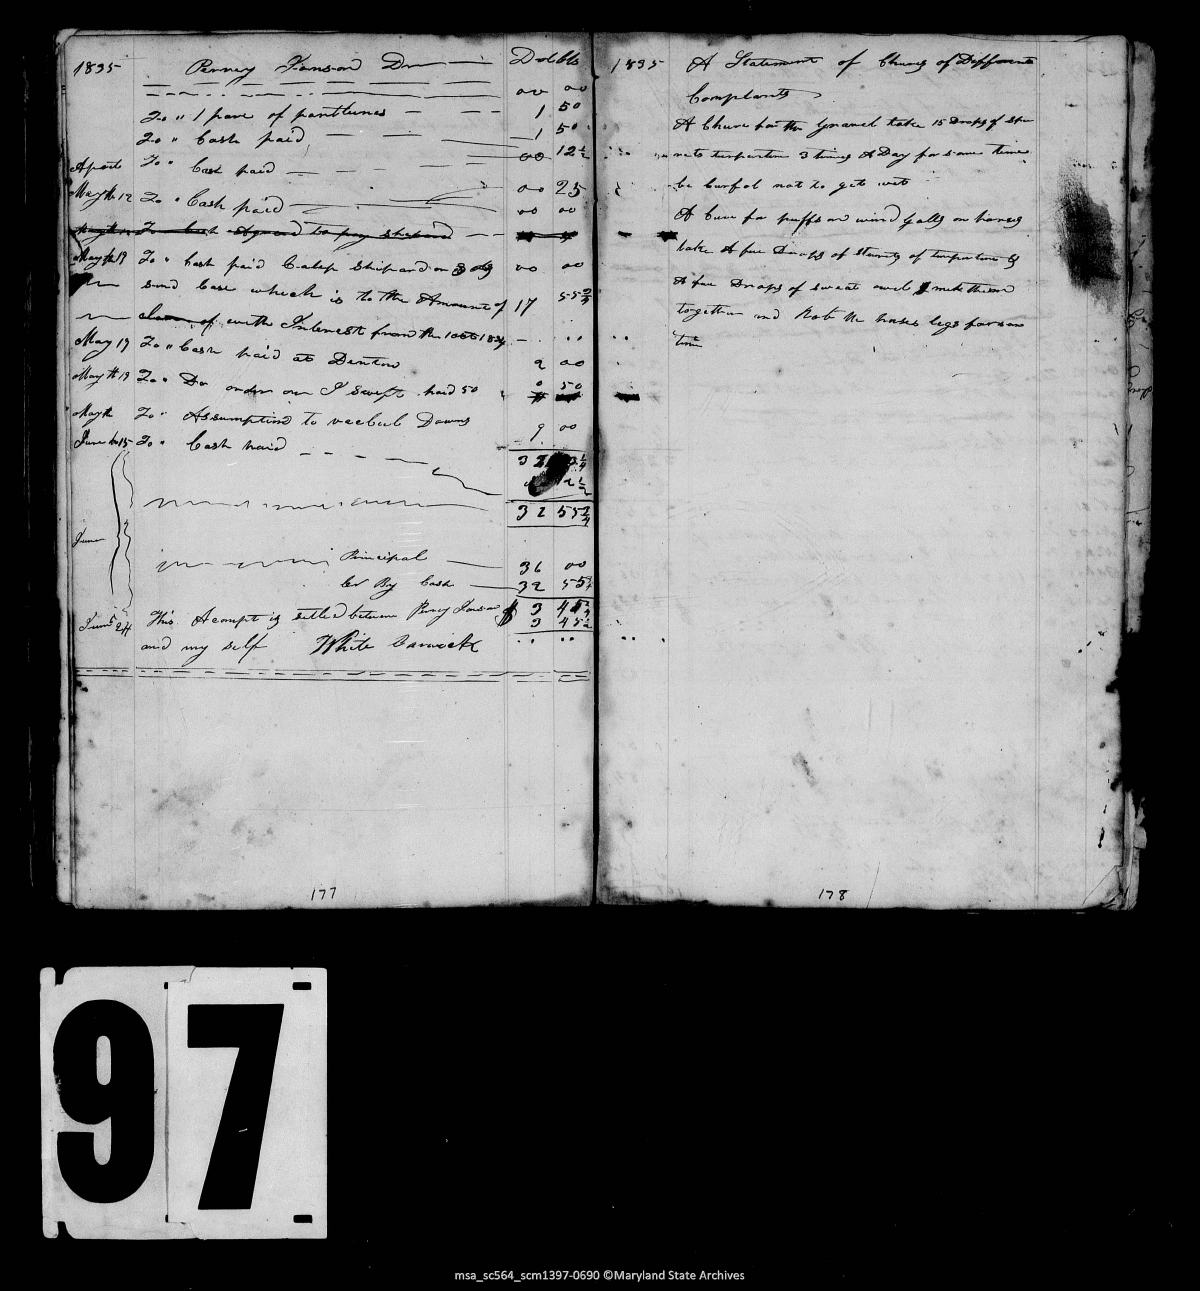 1835 Perrey Fonson Dr Doll cts
00 00
To " 1 pare of pantlunes 1 50
To " Cash paid 1 50
To " Cash paid 00 12 1/2
May th 12 To " Cash paid 00 25
00 00
To Cash Agread to pay shepard
May th 19 To " Cash paid Calep Shipard on 00 00
Case which is to the Amount of 17 55 3/4
with Interest from the
May 19 To " Cash paid at Denton 2 00
May th 19 To " Do order on J Swift paid 50 0 50
May th To " Assumption to Downs
June th 15 To " Cash paid 9 00
32
32 55 3/4
June
Principal 36 00
Cr By Cash 32 55
June 24 This Acompt is settled between Perrey Fonson $ 3 45
3 45
and my self White Carmock
177
1835 A Statement of Chures of Different
Complants
A Chure for the Gravel take 15 Drops of Spe
rets turpentin 3 times A Day for some time
be Carfol not to get wet
A Cure for puffs or wind galls on horses
take A fue Drops of of turpentine &
A fue Drops of sweat oil mix them
together and Rob the horses legs for som
time
178
97
msa_sc564_scm1397-0690 ©Maryland State Archives